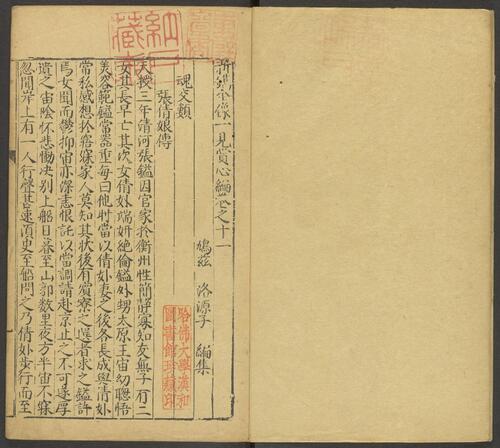 新鐫全像一見賞心編卷之十一
鳩茲 洛源子 編集
魂交類
張倩娘傳
天授三年清河張鎰因官家於衡州性簡靜寡知友無子有二
女其長早亡其次女倩娘端妍絶倫鎰外甥太原王宙幼聰悟
美容範鎰常器重每曰他時當以倩娘妻之後各長成與倩娘
常私感想於寤寐家人莫知其狀後有賓寮之選者求之鎰許
焉女聞而鬱抑宙亦深恚恨託以當調請赴京止之不可遂厚
遣之宙陰懷悲慟决別上船日暮至山郭數里夜方半宙不寐
忽聞岸上有一人行聲甚速須臾至船問之乃倩娘步行而至
哈佛大學漢和
圖書館珍藏印